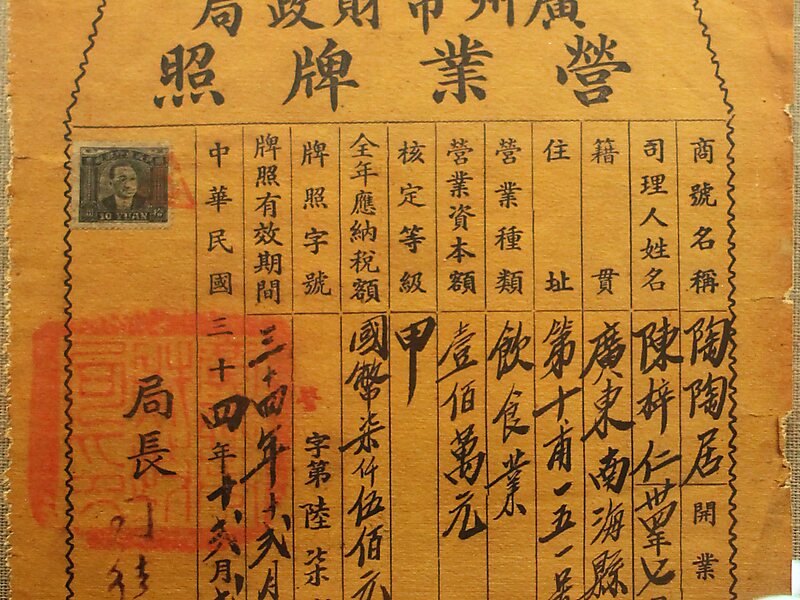 廣州市財政局
營業牌照
商號名稱 陶陶居 開業
司理人姓名 陳梓仁 卅四年七
籍貫 廣東南海縣
住址 第十甫一五一號
營業種類 飲食業
營業資本額 壹佰萬元
核定等級 甲
全年應納稅額 國幣柒仟伍佰元
牌照字號 字第陸柒
牌照有效期間 三十四年十弍月
中華民國三十四年十弍月
局長
10 YUAN